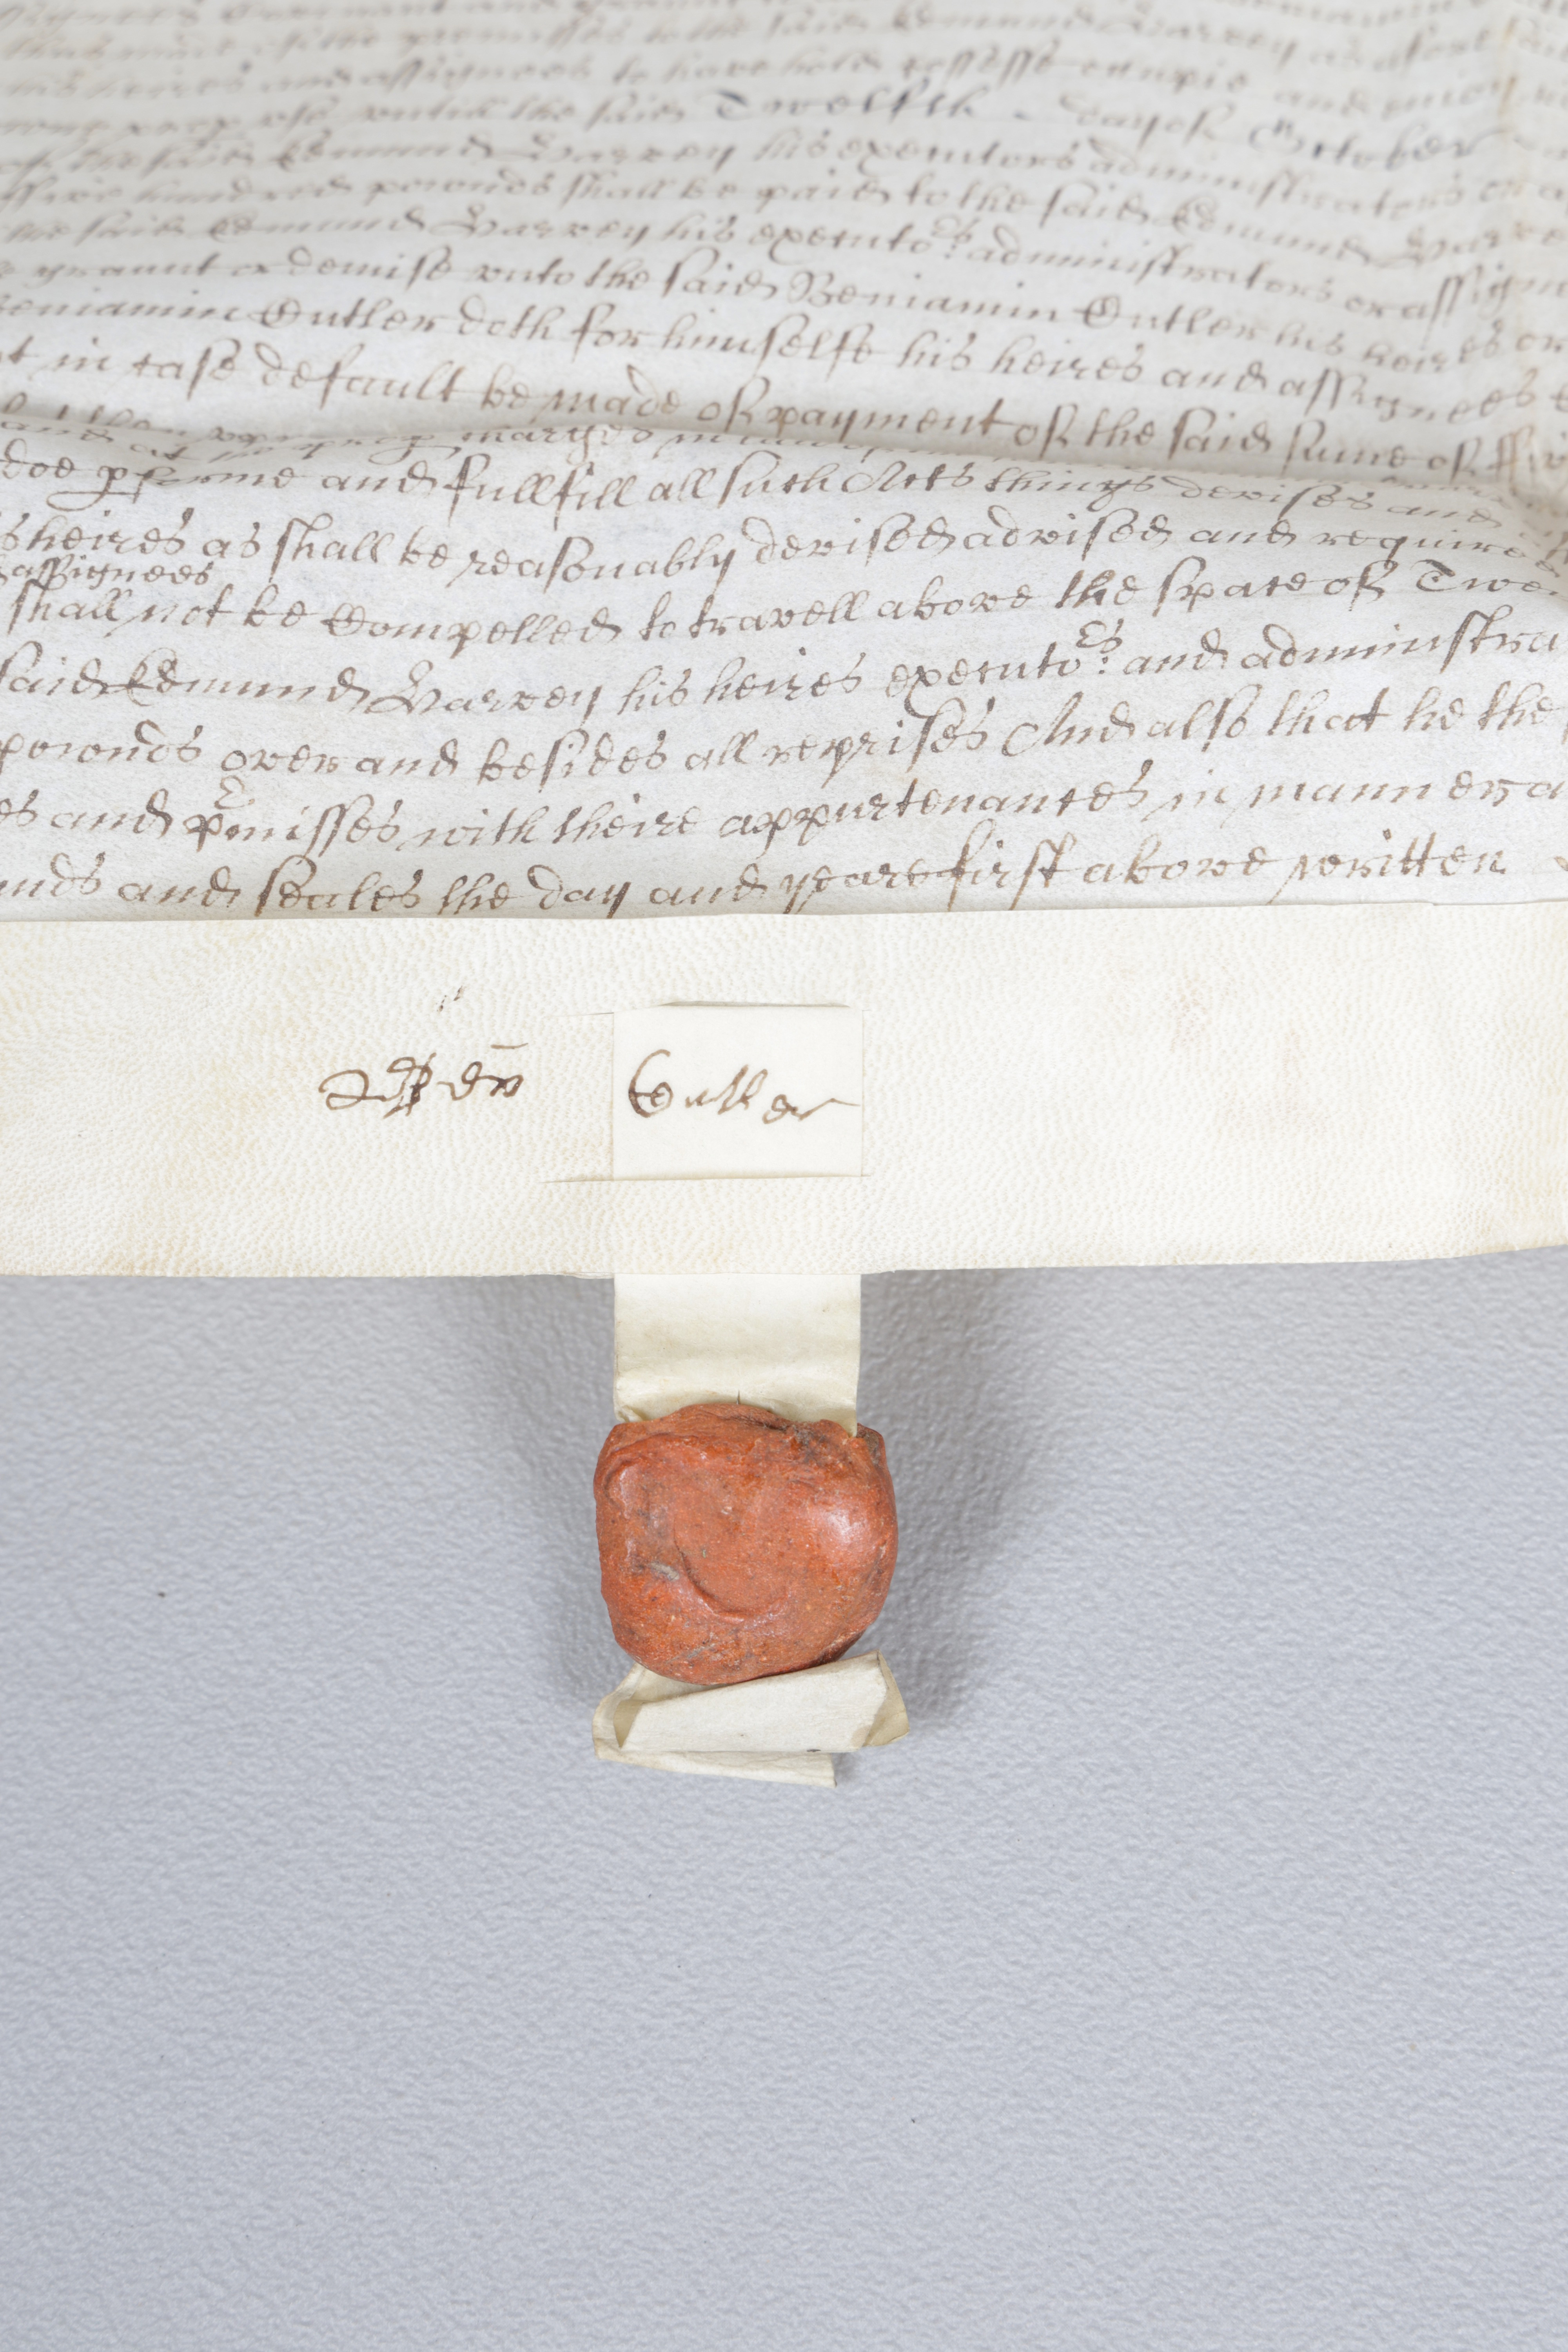 assignees Covenant and
made of the premisses to the said Edmund Harvey as aforesaid
his heires and assignees to have hold possesse occupie and enioy
untill the said Twelfth day of October
of the said Edmund Harvey his executors administrators or
ffive hundred pownds shall be paid to the said Edmund Harve
the said Edmund Harvey his executors: administrators or assign
graunt & demise unto the said Beniamin Cutler his heires or
Beniamin Cutler doth for himselfe his heires and assignees
t in case default be made of payment of the said sume of ffiv
doe pforme and fullfill all such Acts things devises and
s heires as shall be reasonably devised advised and required
assignees
shall not be Compelled to travell above the space of Twe
said Edmund Harvey his heires executors: and administra
pownds over and besides all reprises And also that he the
es and pmisses with theire appurtenances in manner a
nds and seales the day and yeare first above written
Cutler